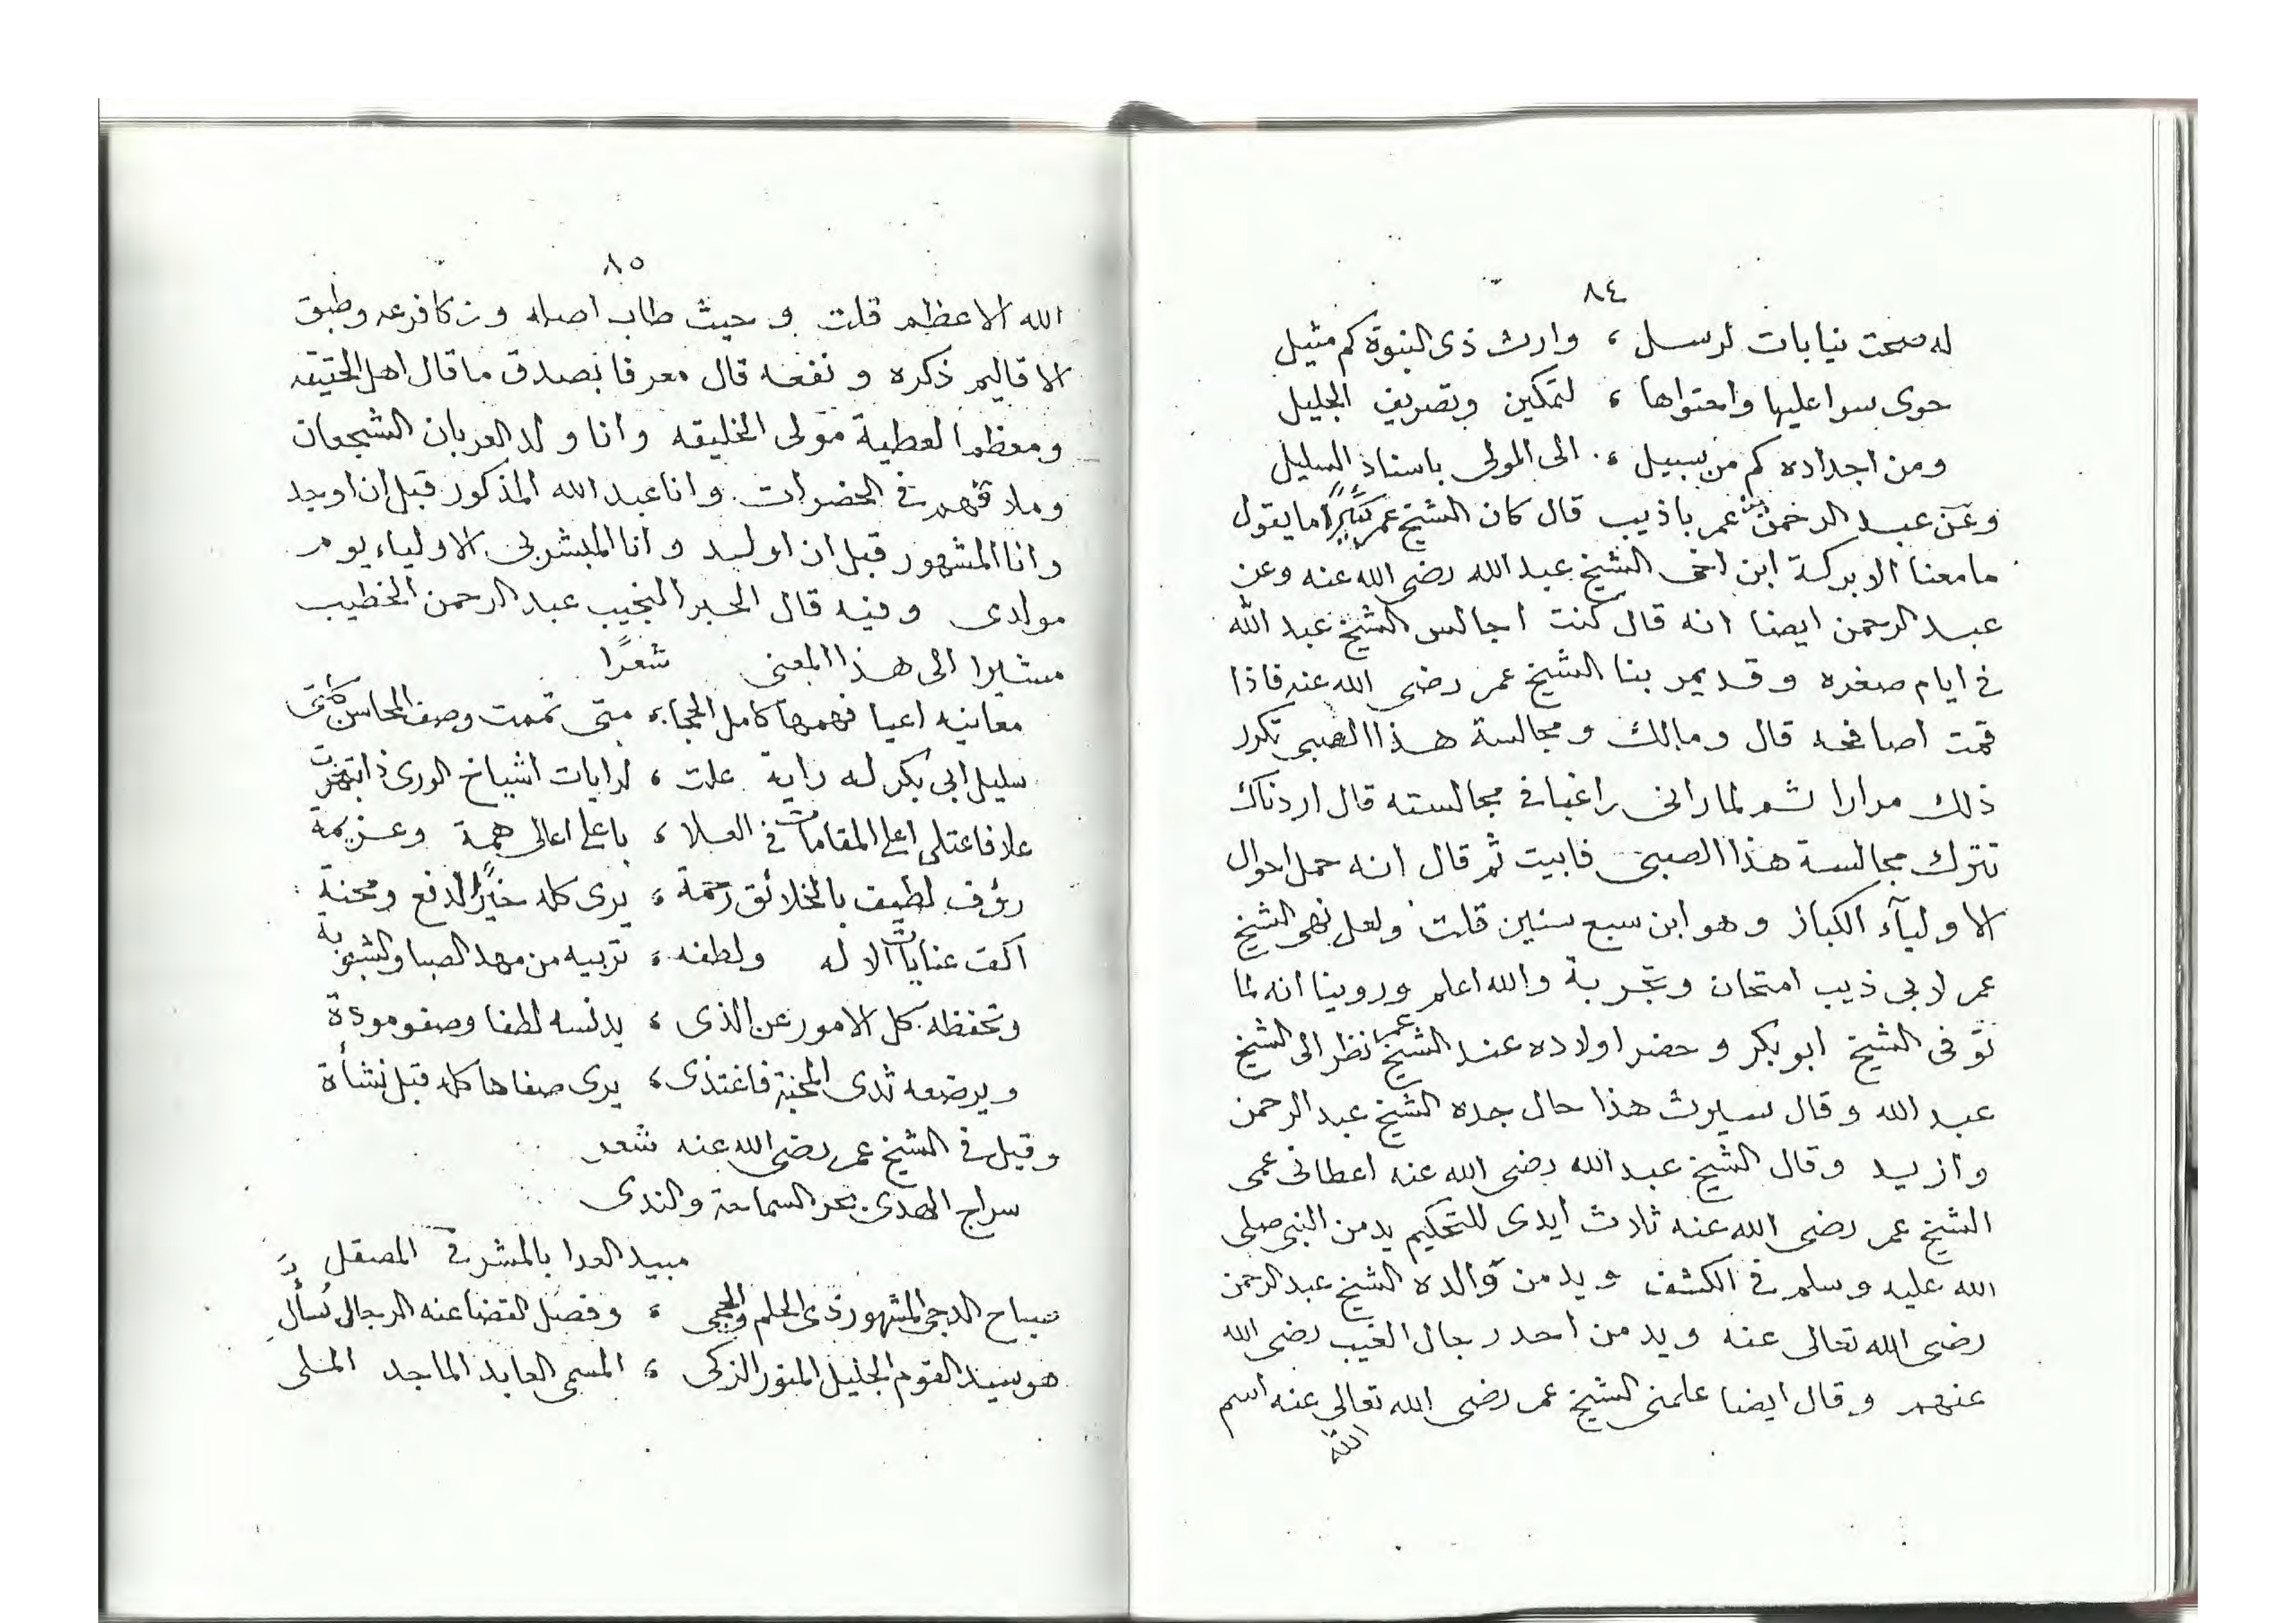 ٨٤
له صحت نيابات لرسل ، وارث ذى النبوة كم مثيل
حوى سرا عليها واحتواها ، لتمكين وتصريف الجليل
ومن اجداده كم من سبيل ، الى المولى باسناد السليل
وعن عبد الرحمن بن عمر باذيب قال كان الشيخ عمر كثيرًا ما يقول
ما معنا الا بركة ابن اخى الشيخ عبد الله رضى الله عنه وعن
عبد الرحمن ايضا انه قال كنت اجالس الشيخ عبد الله
فى ايام صغره وقد يمر بنا الشيخ عمر رضى الله عنه فاذا
قمت اصافحه قال ومالك ومجالسة هذا الصبى تكرر
ذلك مرارا ثم لما رانى راغبا فى مجالسته قال اردناك
تترك مجالسة هذا الصبى فابيت ثم قال انه حمل احوال
الاولياء الكبار وهو ابن سبع سنين قلت ولعل نهى الشيخ
عمر لابى ذيب امتحان وتجربة والله اعلم وروينا انه لما
توفى الشيخ ابو بكر وحضر اولاده عند الشيخ عمر نظر الى الشيخ
عبد الله وقال سيرث هذا حال جده الشيخ عبد الرحمن
وازيد وقال الشيخ عبد الله رضى الله عنه اعطانى عمى
الشيخ عمر رضى الله عنه ثلاث ايدى للتحكيم يد من النبى صلى
الله عليه وسلم فى الكشف ويد من والده الشيخ عبد الرحمن
رضى الله تعالى عنه ويد من احد رجال الغيب رضى الله
عنهم وقال ايضا علمنى الشيخ عمر رضى الله تعالى عنه اسم
الله
٨٥
الله الاعظم قلت وحيث طاب اصله وزكا فرعه وطبق
الاقاليم ذكره ونفعه قال معرفا بصدق ما قال اهل الحقيقه
ومعظم العطية مولى الخليقه وانا ولد العربان الشجعان
وملاقهم فى الحضرات وانا عبد الله المذكور قبل ان اوجد
وانا المشهور قبل ان اولد وانا المبشر بى الاولياء يوم
مولدى وفيه قال الحبر النجيب عبد الرحمن الخطيب
مشيرا الى هذا المعنى شعرًا
معانيه اعيا فهمها كامل الحجا ، متى تممت وصف المحاسن
سليل ابى بكر له راية علت ، لرايات اشياخ الورى
علا فاعتلى اعلى المقامات فى العلا ، باعلى اعالى همة وعزيمة
رؤف لطيف بالخلائق رحمة ، يرى كله خيرًا لدفع ومحنة
اكفت عنايات الاله ولطفه ، تربيه من مهد الصبا والشبوبة
وتحفظه كل الامور عن الذى ، يدنسه لطفا وصفو مودة
ويرضعه ثدى المحبة فاغتذى ، يرى صفاها كله قبل نشأة
وقيل فى الشيخ عمر رضى الله عنه شعر
سراج الهدى بحر السماحة والندى
مبيد العدا بالمشرفى المصقل
صباح الدجى المشهور ذى الحلم والحجى ، وفصل القضا عنه الرجالى
هو سيد القوم الجليل المنور الزكى ، المسمى العابد الماجد الملى